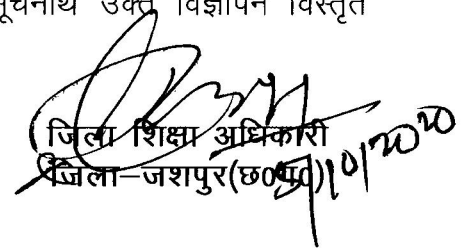 सूचनार्थ उक्त विज्ञापन विस्तृत
जिला शिक्षा अधिकारी
जिला–जशपुर(छ0ग0)
/10/2020